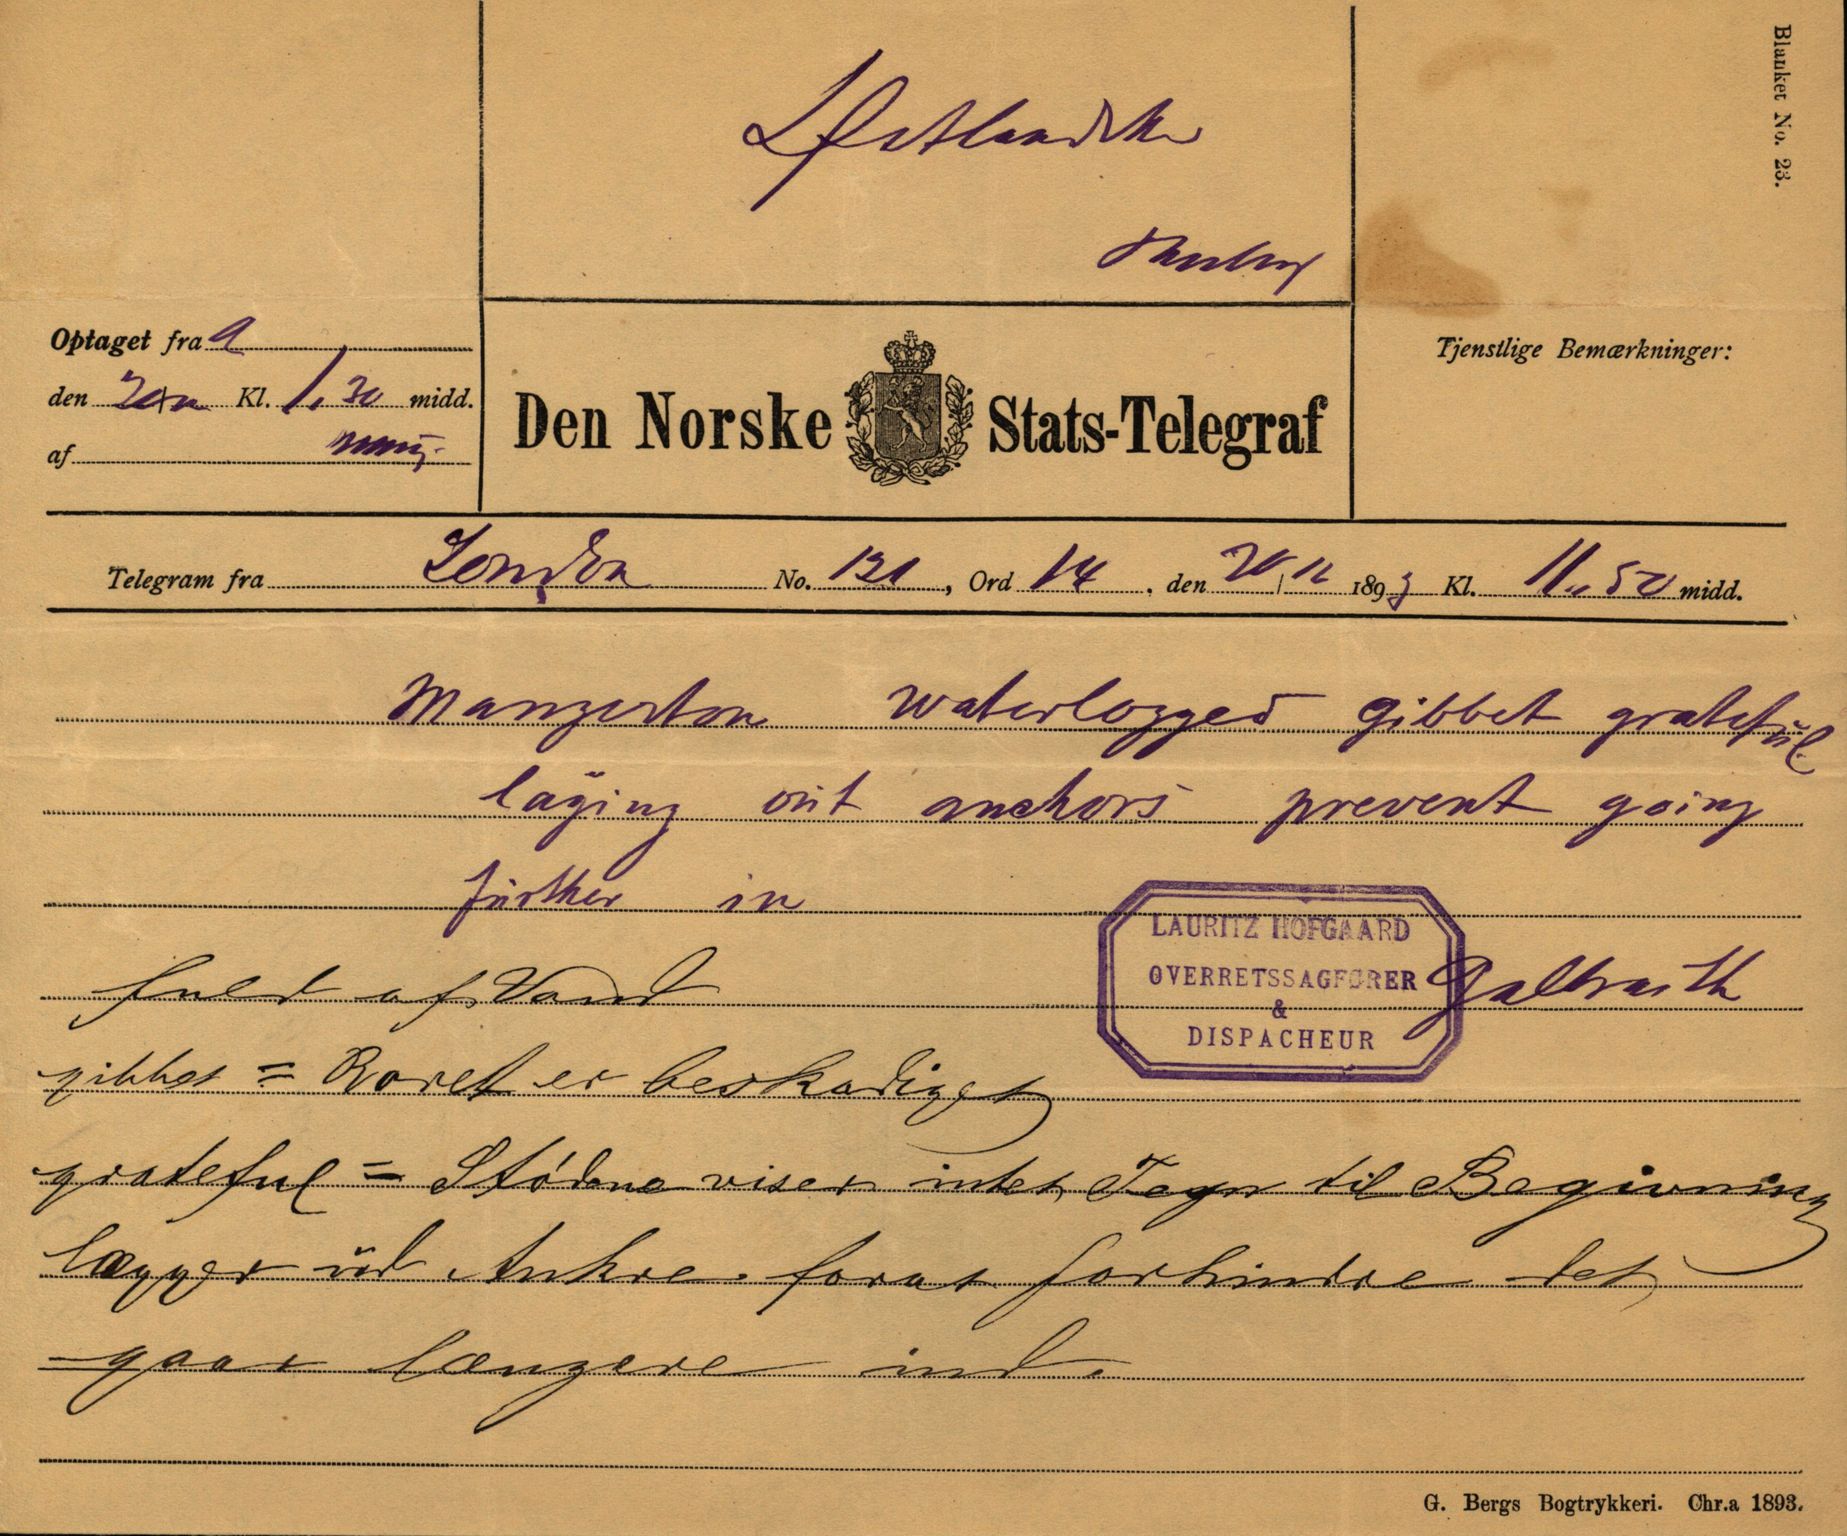 Blanket No. 23.
Østlandske
Optaget fra a
den 20/11 Kl. 1.30 midd.
af
Den Norske Stats-Telegraf
Tjenstlige Bemærkninger:
Telegram fra London No. 121, Ord 14, den 20/11 1893 Kl. 11.50 midd.
Mangerton waterlogged gibbet grateful
laying out anchors prevent going
further in
Galbraith
LAURITZ HOFGAARD
OVERRETSSAGFØRER
&
DISPACHEUR
fuld af Vand
gibbet = Roret er beskadiget
grateful = Stødene viser intet Tegn til Begivning
lægger ud Ankre forat forhindre det
gaar længere ind.
G. Bergs Bogtrykkeri. Chr.a 1893.